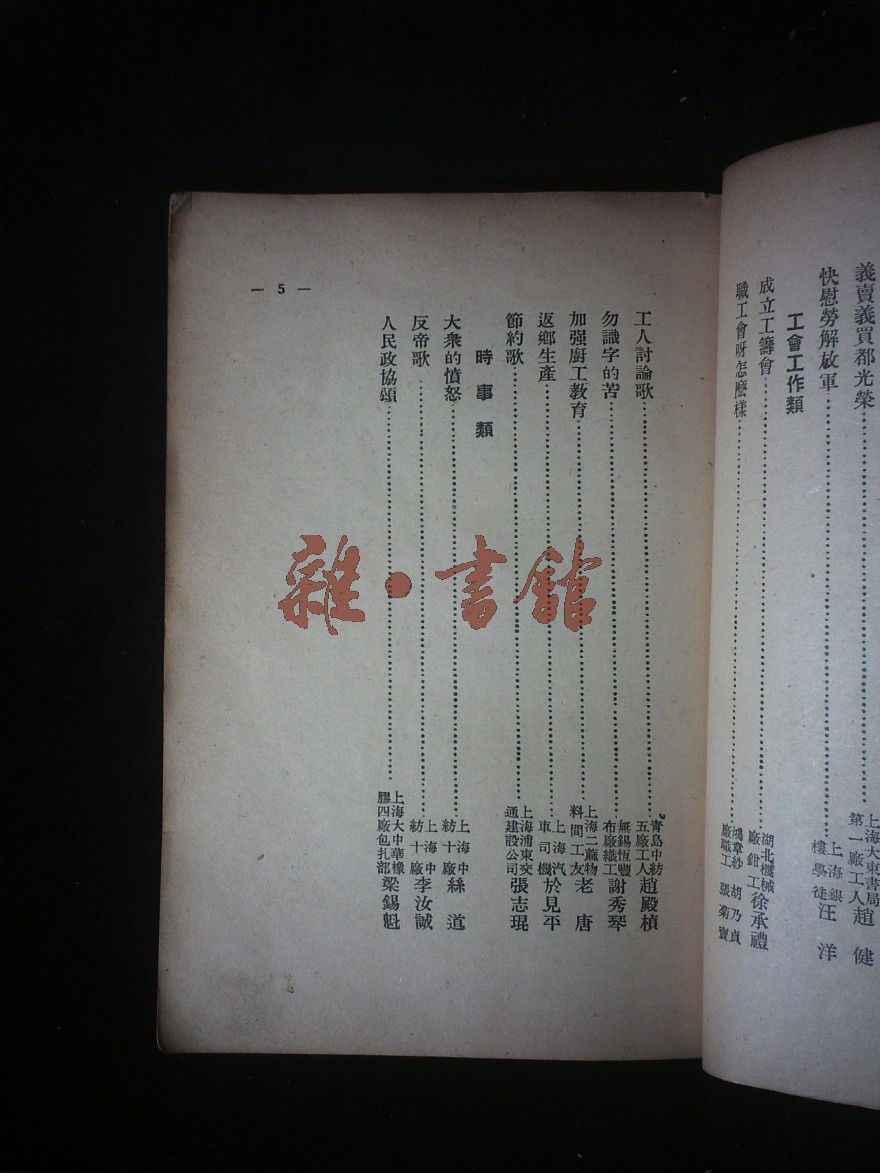 義賣義買都光榮……上海大東書局第一廠工人趙健
快慰勞解放軍……上海銀樓學徒汪洋
工會工作類
成立工籌會……湖北機械廠鉗工徐承禮
職工會呀怎麽樣……鴻章紗廠職工胡乃貞 張菊寶
工人討論歌……青島中紡五廠工人趙殿楨
勿識字的苦……無錫恆豐布廠織工謝秀琴
加强廚工教育……上海二蔴物料間工友老唐
返鄉生產……上海汽車司機於見平
節約歌……上海浦東交通建設公司張志琨
時事類
大衆的憤怒……上海中紡十廠絲道
反帝歌……上海中紡十廠李汝誠
人民政協頌……上海大中華橡膠四廠包扎部梁錫魁
— 5 —
雜·書館